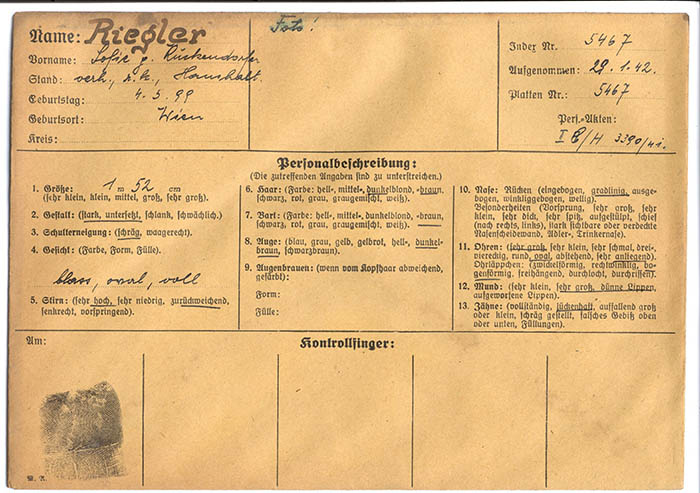 Name: Riegler
Foto!
Index Nr. 5467
Vorname: Sofie g. Rückendorfer
Stand: verh., r. k., Haushalt.
Aufgenommen: 29.1.42.
Geburtstag: 4. 5. 99
Platten Nr.: 5467
Geburtsort: Wien
Pers.-Akten:
Kreis:
3390/41.
Personalbeschreibung:
(Die zutreffenden Angaben sind zu unterstreichen.)
1. Größe: 1 m 52 cm
(sehr klein, klein, mittel, groß, sehr groß).
2. Gestalt: (stark, untersetzt, schlank, schwächlich.)
3. Schulterneigung: (schräg, waagerecht.)
4. Gesicht: (Farbe, Form, Fülle).
blass, oval, voll
5. Stirn: (sehr hoch, sehr niedrig, zurückweichend,
senkrecht, vorspringend).
6. Haar: (Farbe: hell-, mittel-, dunkelblond, -braun,
schwarz, rot, grau, graugemischt, weiß).
7. Bart: (Farbe: hell-, mittel-, dunkelblond, -braun,
schwarz, rot, grau, graugemischt, weiß).
8. Auge: (blau, grau, gelb, gelbrot, hell-, dunkel-
braun, schwarzbraun).
9. Augenbrauen: (wenn vom Kopfhaar abweichend,
gefärbt):
Form:
Fülle:
10. Nase: Rücken (eingebogen, gradlinig, ausge-
bogen, winkliggebogen, wellig).
Besonderheiten (Vorsprung, sehr groß, sehr
klein, sehr dick, sehr spitz, aufgestülpt, schief
(nach rechts, links), stark sichtbare oder verdeckte
Nasenscheidewand, Adler-, Trinkernase).
11. Ohren: (sehr groß, sehr klein, sehr schmal, drei-,
viereckig, rund, oval, abstehend, sehr anliegend).
Ohrläppchen: (zwickelförmig, rechtwinklig, bo-
genförmig, freihängend, durchlocht, durchrissen).
12. Mund: (sehr klein, sehr groß, dünne Lippen,
aufgeworfene Lippen).
13. Zähne: (vollständig, lückenhaft, auffallend groß
oder klein, schräg gestellt, falsches Gebiß oben
oder unten, Füllungen).
Am:
Kontrollfinger: